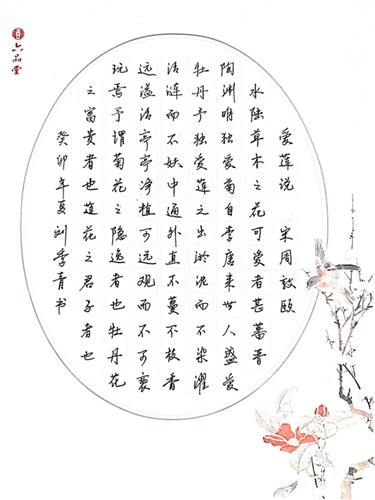 爱莲说 宋周敦颐
水陆草木之花可爱者甚蕃晋
陶渊明独爱菊自李唐来世人盛爱
牡丹予独爱莲之出淤泥而不染濯
清涟而不妖中通外直不蔓不枝香
远溢清亭亭净植可远观而不可亵
玩焉予谓菊花之隐逸者也牡丹花
之富贵者也莲花之君子者也
癸卯年夏刘季青书
六品堂